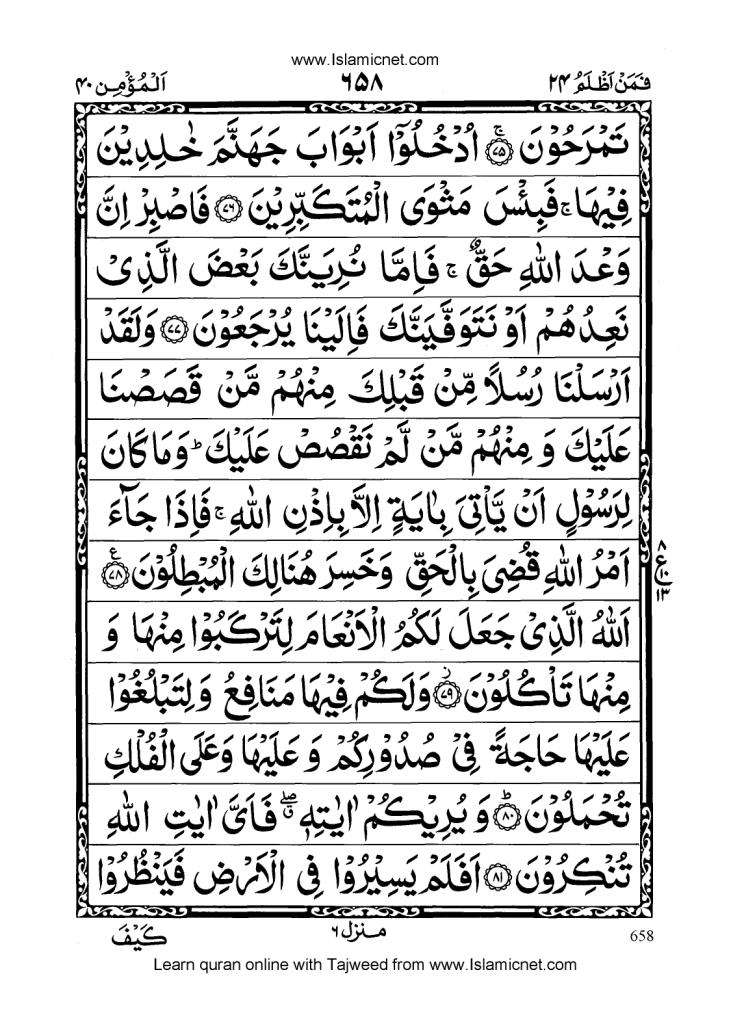 www.Islamicnet.com
فَمَنْ اَظْلَمُ ٢٤ ٦٥٨ اَلْمُؤْمِن ٤٠
تَمْرَحُوْنَ ۚ﴿٧٥﴾ اُدْخُلُوْۤا اَبْوَابَ جَهَنَّمَ خٰلِدِيْنَ
فِيْهَا ۚ فَبِئْسَ مَثْوَى الْمُتَكَبِّرِيْنَ ﴿٧٦﴾ فَاصْبِرْ اِنَّ
وَعْدَ اللّٰهِ حَقٌّ ۚ فَاِمَّا نُرِيَنَّكَ بَعْضَ الَّذِىْ
نَعِدُهُمْ اَوْ نَتَوَفَّيَنَّكَ فَاِلَيْنَا يُرْجَعُوْنَ ﴿٧٧﴾ وَلَقَدْ
اَرْسَلْنَا رُسُلًا مِّنْ قَبْلِكَ مِنْهُمْ مَّنْ قَصَصْنَا
عَلَيْكَ وَ مِنْهُمْ مَّنْ لَّمْ نَقْصُصْ عَلَيْكَ ؕ وَمَا كَانَ
لِرَسُوْلٍ اَنْ يَّاْتِىَ بِاٰيَةٍ اِلَّا بِاِذْنِ اللّٰهِ ۚ فَاِذَا جَآءَ
اَمْرُ اللّٰهِ قُضِىَ بِالْحَقِّ وَخَسِرَ هُنَالِكَ الْمُبْطِلُوْنَ ﴿٧٨﴾ ع
٨
ع ١٠
١٣
اَللّٰهُ الَّذِىْ جَعَلَ لَكُمُ الْاَنْعَامَ لِتَرْكَبُوْا مِنْهَا وَ
مِنْهَا تَاْكُلُوْنَ ز﴿٧٩﴾ وَلَكُمْ فِيْهَا مَنَافِعُ وَلِتَبْلُغُوْا
عَلَيْهَا حَاجَةً فِىْ صُدُوْرِكُمْ وَ عَلَيْهَا وَعَلَى الْفُلْكِ
تُحْمَلُوْنَ ؕ﴿٨٠﴾ وَ يُرِيْكُمْ اٰيٰتِهٖ ۖق فَاَىَّ اٰيٰتِ اللّٰهِ
تُنْكِرُوْنَ ﴿٨١﴾ اَفَلَمْ يَسِيْرُوْا فِى الْاَرْضِ فَيَنْظُرُوْا
منزل ٦ كَيْفَ
658
Learn quran online with Tajweed from www.Islamicnet.com